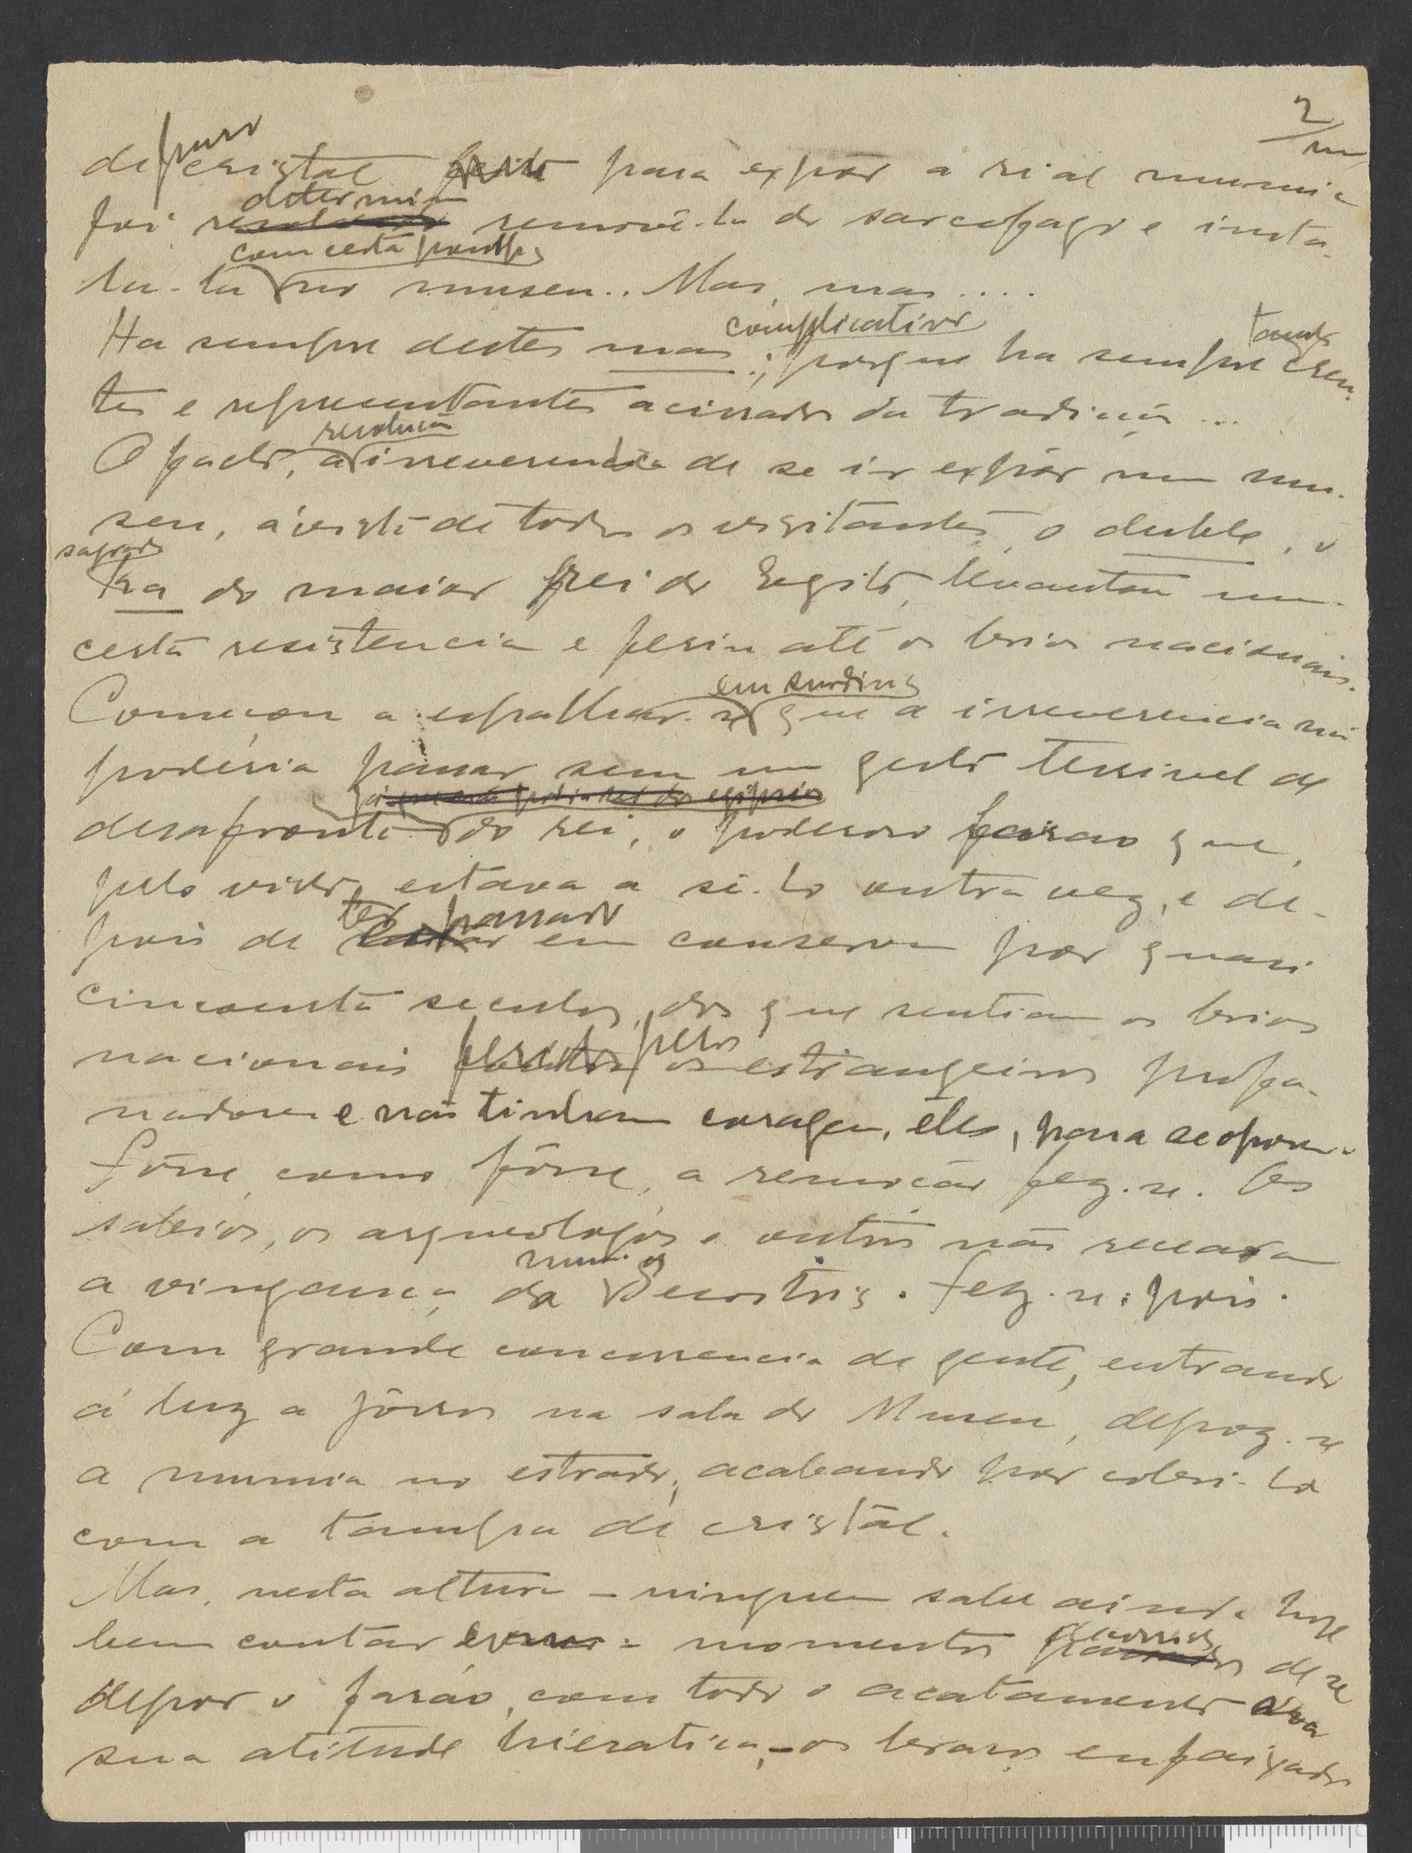 2/III
de puro cristal para expôr a rial mumia
foi determi removê-la do sarcofago e insta-
la-la com certa pompa no museu.. Mas, mas....
Ha sempre destes mas complicativos; porque ha sempre cren-
tes e representantes acirrados da tradição...
O facto, a resolução irreverencia de se ir expôr num mu-
seu, á vista de todos os visitantes, o duble, o
sagrado ka do maior rei do Egito, levantou um
certa resistencia e feriu até os brios nacionais.
Começou a espalhar-se em surdina que a irreverencia não
poderia passar sem um gesto terrivel de
desafronta do rei, o poderoso faraó que,
pelo visto, estava a sê-lo outra vez, e de-
pois de ter passado em conserva por quasi
cincoenta seculos, dos que sentiam os brios
nacionais feridos pelos estrangeiros profa-
nadores e não tinham coragem, eles, para se opôr.
Fôsse como fôsse, a remoção fez-se. Os
sabios, os arqueologos e outros não receavam
a vingança da mumia Sesostris. Fez-se, pois.
Com grande concorrencia de gente, entrando
á luz a jôrros na sala do Museu, depoz-se
a mumia no estrado, acabando por cobri-la
com a tampa de cristal.
Mas, nesta altura - ninguem sabe ainda hoje
bem contar - momentos decorridos de se
depor o faraó, com todo o acatamento á
sua atitude hieratica, - os braços enfaixados